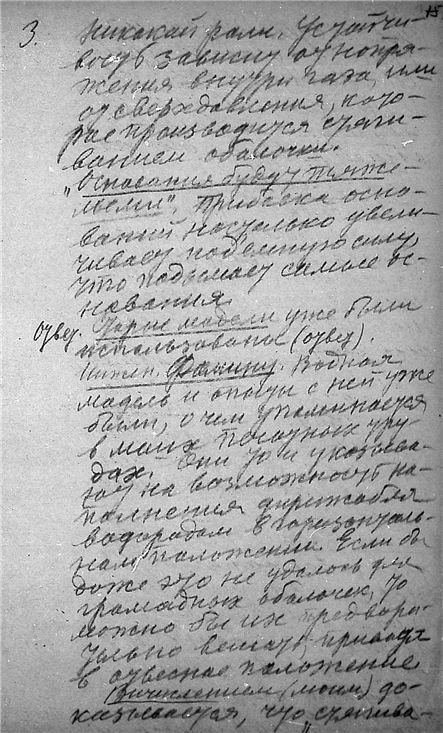 3. никакой роли. Устойчи- 15
вость зависит от напря-
жения внутри газа, или
от сверхдавления, кото-
рое производится стяги-
ванием оболочки.
"Основания будут тяже-
лыми". Трибека осно-
ваний настолько увели-
чивает подъемную силу,
что подымает самые ос-
нования.
Ответ. модели уже были
использованы (ответ).
Инжен. Фомину. Водная
модель и опыты с ней уже
были, о чем упоминается
в моих печатных тру-
дах. Они то и указыва-
ют на возможность на-
полнения дирижабля
водородом в горизонталь-
ном положении. Если бы
даже это не удалось для
громадных оболочек, то
можно бы их предвари-
тельно вешать, приводя
в отвесное положение.
Вычислением (моим) до-
казывается, что "стягива-